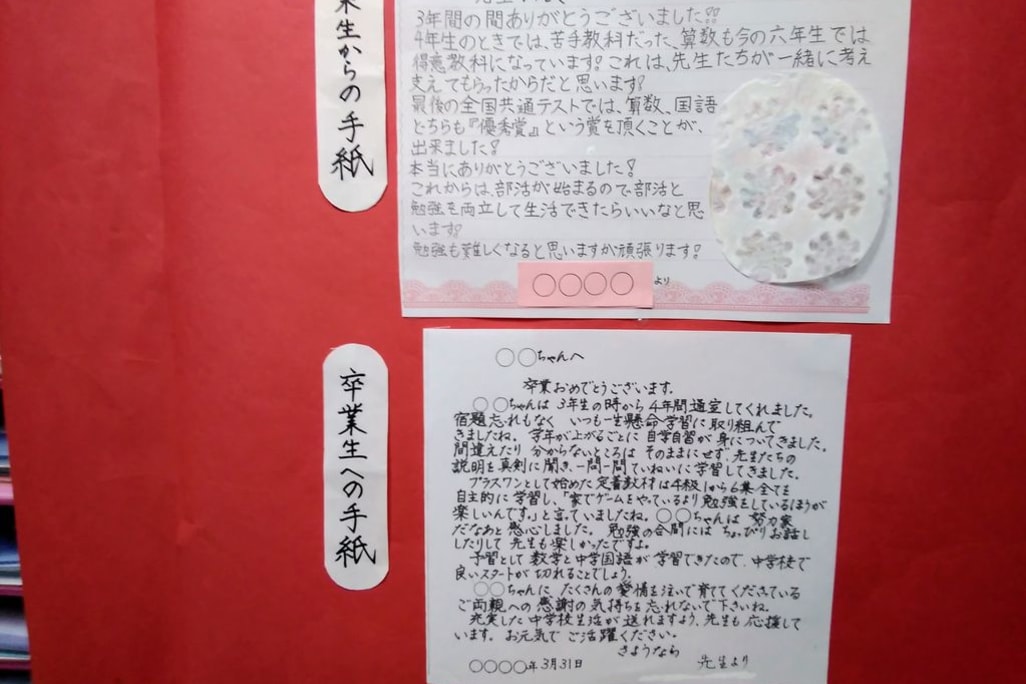 業生からの手紙
3年間の間ありがとうございました!!
4年生のときでは、苦手教科だった、算数も今の六年生では
得意教科になっています!これは、先生たちが一緒に考え
支えてもらったからだと思います!
最後の全国共通テストでは、算数、国語
どちらも『優秀賞』という賞を頂くことが、
出来ました!
本当にありがとうございました!
これからは、部活が始まるので部活と
勉強を両立して生活できたらいいなと思
います!
勉強も難しくなると思いますが頑張ります!
○○○○より
卒業生への手紙
○○ちゃんへ
卒業おめでとうございます。
○○ちゃんは3年生の時から4年間通室してくれました。
宿題忘れもなく いつも一生懸命学習に取り組んで
きましたね。学年が上がるごとに自学自習が身についてきました。
間違えたり 分からないところは そのままにせず、先生たちの
説明を真剣に聞き、一問一問ていねいに学習してきました。
プラスワンとして始めた定着教材は4級1から6集全てを
自主的に学習し、「家でゲームをやっているより勉強をしているほうが
楽しいんです。」と言っていましたね。○○ちゃんは 努力家
だなあと感心しました。勉強の合間には ちょっぴりお話し
したりして 先生も楽しかったですよ。
予習として 数学と中学国語が 学習できたので、中学校で
良いスタートが 切れることでしょう。
○○ちゃんに たくさんの愛情を注いで育ててくださっている
ご両親への感謝の気持ちを忘れないで下さいね。
充実した中学校生活が 送れますよう、先生も応援して
います。お元気でご活躍ください。
さようなら
○○○○年3月31日 先生より